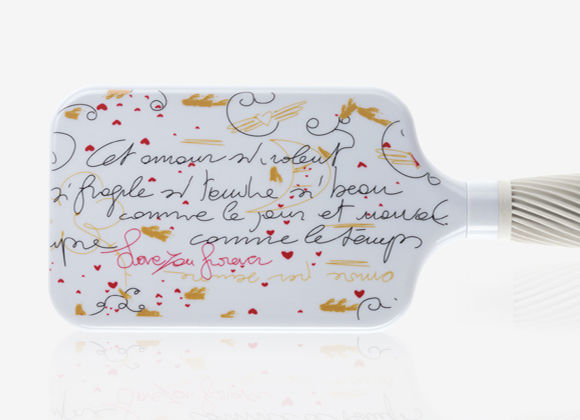 Cet amour si violent
si fragile si tendre si beau
comme le jour et mauvais
comme le temps
I love you forever